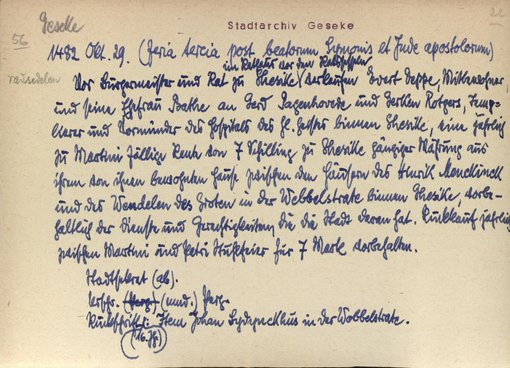 Geseke
Stadtarchiv Geseke
22
56
1482 Okt. 29. (feria tercia post beatorum Symonis et Jude apostolorum)
im Rathaus vor dem
Vor Bürgermeister und Rat zu Ghesike verkaufen Evert Deppe, Mitbewohner,
und seine Ehefrau Bathe an Gerd Pagenhovede und Gerken Rotgers, Temp-
lierer und Vormünder des Hospitals des Hl. Geistes binnen Ghesike, eine jährlich
zu Martini fällige Rente von 7 Schilling zu Ghesike gängiger Währung aus
ihrem von ihnen bewohnten Hause zwischen den Häusern des Hinrik Monckinck
und des Wendelen des Groten in der Webbelstrate binnen Ghesike, vorbe-
haltlich der Dienste und Gerechtigkeiten die die Stadt daran hat. Rückkauf jährlich
zwischen Martini und Petri Stuhlfeier für 7 Mark vorbehalten.
Stadtsekret (ab).
Urschr. (mnd.) Perg.
Rückschrift: Item Johan in der Wobbelstrate.
(16. Jh.)